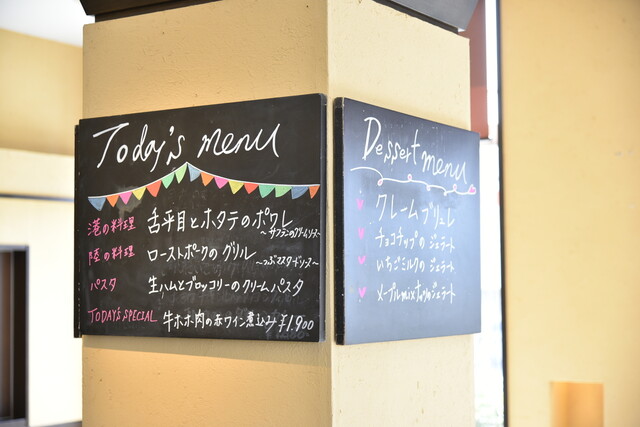 Today's menu
港の料理 舌平目とホタテのポワレ
～サフランのクリームソース～
陸の料理 ローストポークのグリル
～つぶマスタードソース～
パスタ 生ハムとブロッコリーのクリームパスタ
TODAY'S SPECIAL 牛ホホ肉の赤ワイン煮込み ¥1,900
Dessert menu
クレームブリュレ
チョコチップのジェラート
いちごミルクのジェラート
メープルmixナッツのジェラート